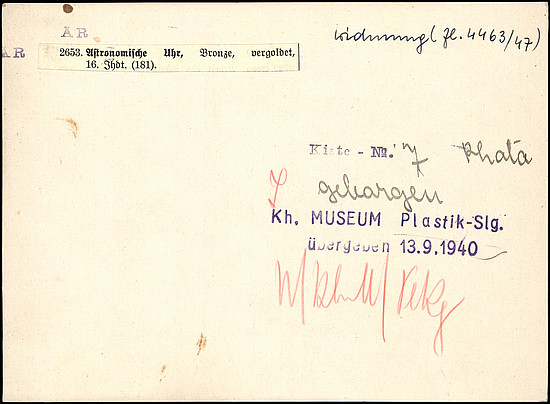 AR
Widmung (Zl. 4463/47)
AR
2653. Astronomische Uhr, Bronze, vergoldet,
16. Jhdt. (181).
Kiste - Nr. 7 Khata
geborgen
Kh. MUSEUM Plastik-Slg.
übergeben 13.9.1940